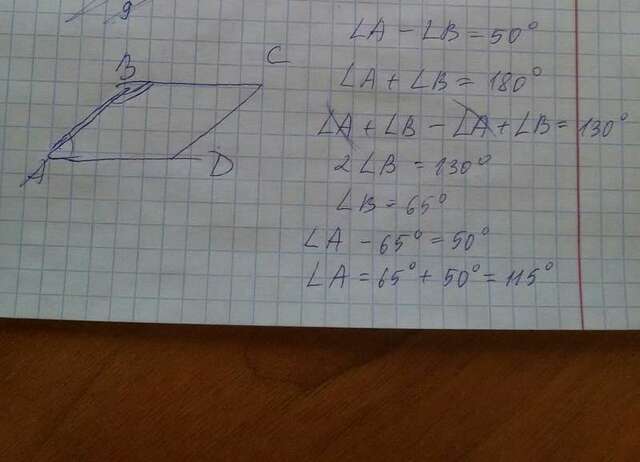 9
B
C
A
D
∠A - ∠B = 50°
∠A + ∠B = 180°
∠A + ∠B - ∠A + ∠B = 130°
2∠B = 130°
∠B = 65°
∠A - 65° = 50°
∠A = 65° + 50° = 115°